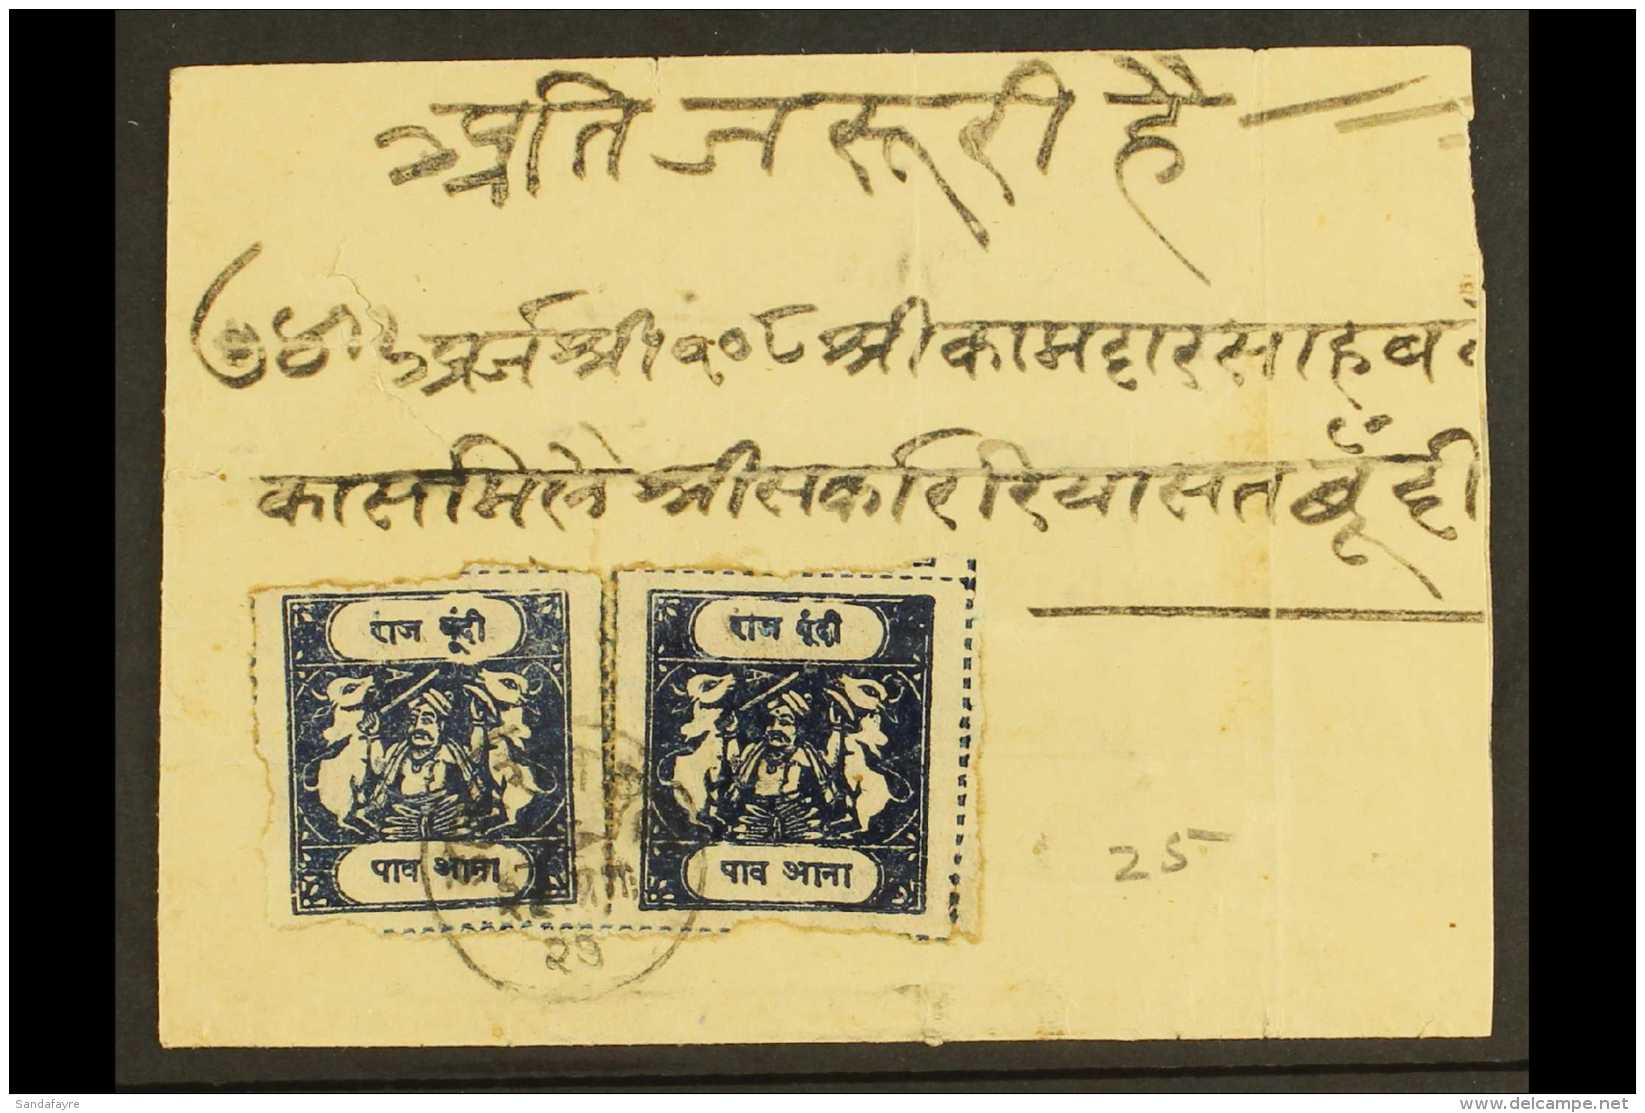 अति जरूरी है
अर्ज श्री १०८ श्री कामदार साहब
का सामिल श्री सर्कार रियासत बूंदी
राज बूंदी
राज बूंदी
पाव आना
पाव आना
25
२९
Sandafayre
delcampe.net